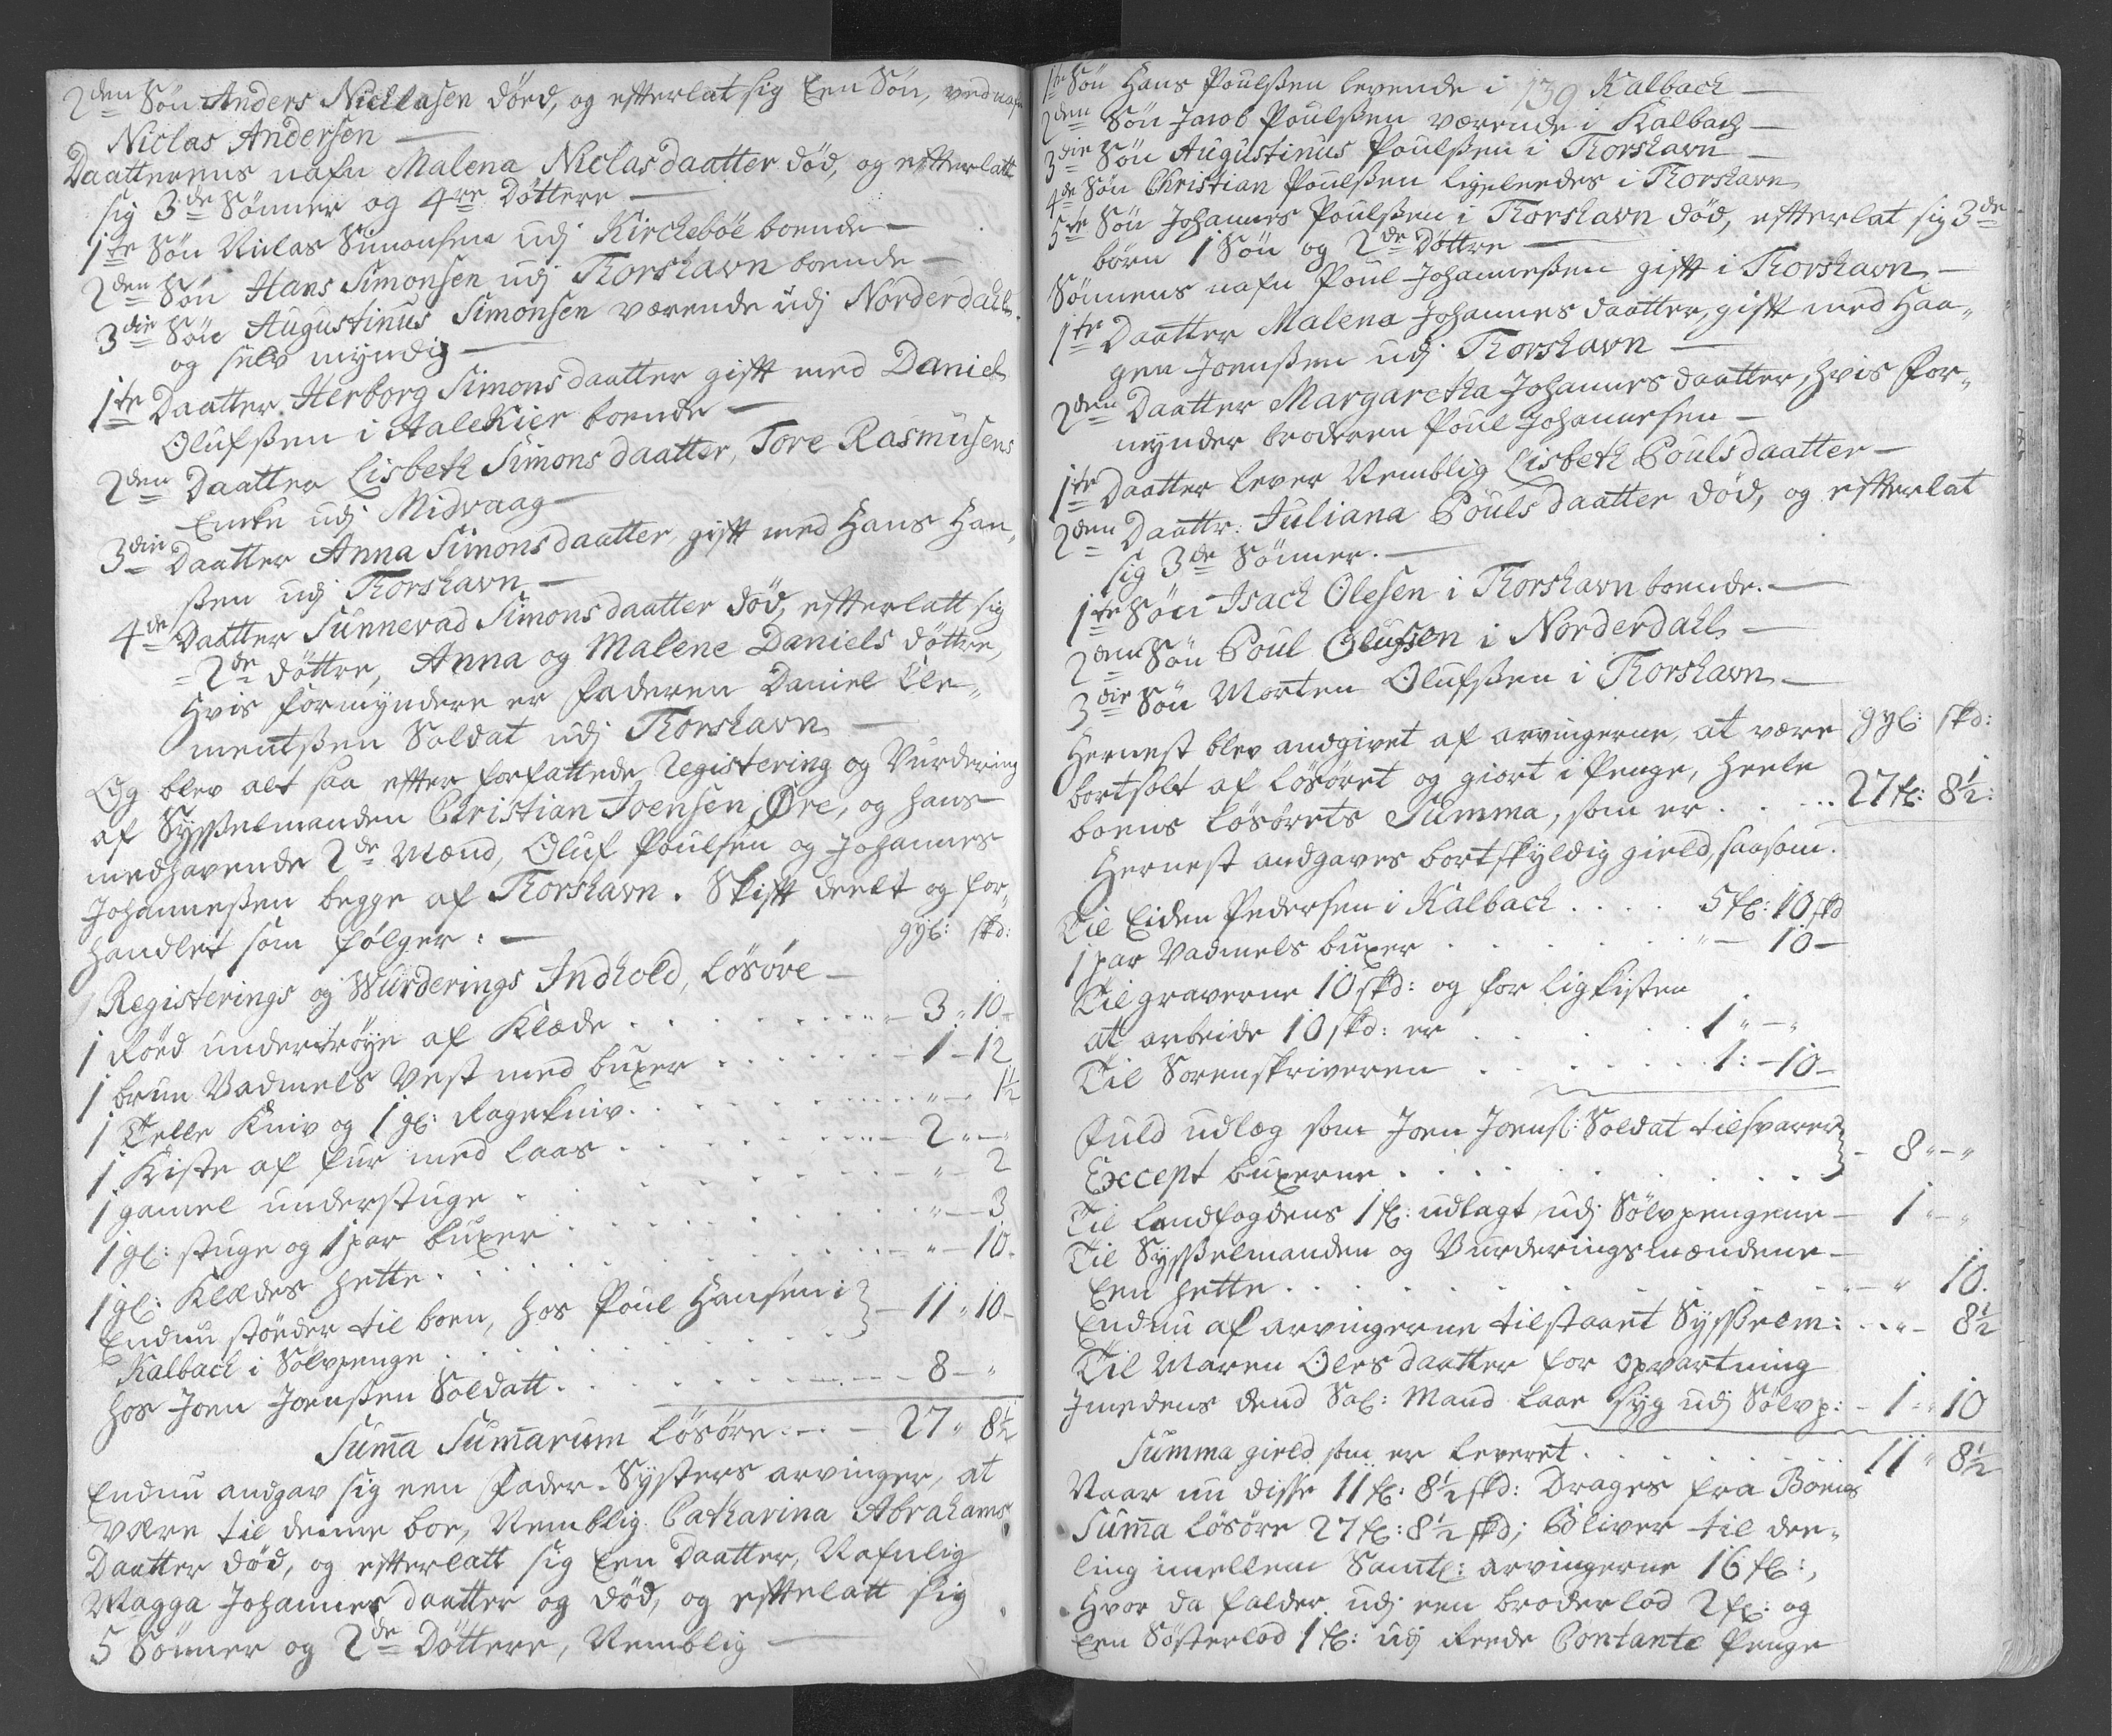 2den Søn Anders Nicklasen döed, og efterlat sig Een Søn, ved nafn
Niclas Andersen —
Daatterens nafn Malena Niclasdaatter død, og efterlatt
sig 3de Sønner og 4re Døttere —
1te Søn Niclas Simonsen udj Kirckebøe boende —
2den Søn Hans Simonsen udj Thorshavn boende —
3die Søn Augustinus Simonsen værende udj Norderdahl
og selv myndig —
1te Daatter Herborg Simonsdaatter gift med Daniel
Olufssen i Aalekier boende —
2den Daatter Lisbeth Simonsdaatter, Tore Rasmusens
Encke udj Midvaag —
3die Daatter Anna Simonsdaatter, gift med Hans Han„
ssen udj Thorshavn —
4de Daatter Sunnevad Simonsdaatter død, efterlatt sig
2de døttre, Anna og Malene Daniels døttre,
Hvis formyndere er faderen Daniel Cle„
mentssen Soldat udj Thorshavn —
Og blev alt saa efter forfattede Registering og Vurdering
af Sysselmanden Christian Joensen Øre, og hans
medhavende 2de Mænd, Oluf Poulsen og Johannes
Johannessen begge af Thorshavn. Skift deelt og for„
handlet som følger: — gyl: skd:
Registerings og Wurderings Indhold, Løsøre —
1 Röed undertröye af Klæde . . . . 3 „ 10 —
1 brun Vadmels Vest med buxer . . . . 1 — 12
1 Telle Kniv og 1 gl: Ragekniv . . . . „ — 1½
1 Kiste af fur med laas . . . . 2 „ — „
1 gamel understuge . . . . „ — 2
1 gl: stuge og 1 par buxer . . . . „ — 3
1 gl: Klædes hette . . . . „ — 10.
Endnu støder til boen, hos Poul Hansen i } — 11 „ 10 —
Kalbach i Sølvpenge . . . .
hos Joen Joenssen Soldatt . . . . 8 — „
Summa Summarum Løsøre . . — 27 „ 8½
Endnu andgav sig een Fader-Systers arvinger, at
være til denne boe, Nemblig Catharina Abrahams
Daatter død, og efterlatt sig Een Daatter, Nafnlig
Magga Johannes daatter og død, og eftelatt sig
5 Sønner og 2de Døttere, Nemblig —
139
1te Søn Hans Poulssen levende i Kalbach —
2den Søn Jacob Poulssen værende i Kalbach —
3die Søn Augustinus Poulssen i Thorshavn —
4de Søn Christian Poulssen ligeleedes i Thorshavn
5te Søn Johannes Poulssen i Thorshavn død, efterlat sig 3de
börn 1 Søn og 2de Døttre —
Sønnens nafn Poul Johannessen gift i Thorshavn —
1te Daatter Malena Johannes daatter, gift med Haa„
gen Joenssen udj Thorshavn —
2den Daatter Margaretha Johannesdaatter, Hvis for„
mynder broderen Poul Johannesen —
1te Daatter lever Nemblig Lisbeth Poulsdaatter —
2den Daattr: Juliana Pouls daatter död, og efterlat
sig 3de Sønner. —
1te Søn Isach Olesen i Thorshavn boende. —
2den Søn Poul Olufsen i Norderdahl —
3die Søn Morten Olufssen i Thorshavn —
Hernest blev andgivet af arvingerne, at være gyl: skd:
bortsolt af Løsøret og giort i Penge, Heele
boens Løsørets Summa, som er . . . . 27 fl: 8½:
Hernest andgaves bortskyldig gield, saasom:
Til Eiden Pedersen i Kalbach . . . . 5 fl: 10 skd
1 par Vadmels buxer . . . . „ — 10 —
Til graverne 10 skd: og for Ligkisten
at arbeide 10 skd: er . . . . 1 „ — „
Til Sorenskriveren . . . . 1: — 10 —
Fuld udlæg som Joen Joens: Soldat tilsvarer } — 8 „ — „
Except buxerne . . . .
Til Landfogdens 1 fl: udlagt udj Sølvpengene — 1 „ — „
Til Sysselmanden og Vurderingsmændene —
Een hette . . . . „ 10.
Endnu af arvingerne tilstaaet Sysselm: . . „ — 8½
Til Maren Olesdaatter for opvartning
Jmedens dend Sal: Mand laae syg udj Sølvp: — 1 „ 10
Summa gield som er leveret . . . . 11 „ 8½
Naar nu disse 11 fl: 8½ skd: Drages fra Boens
Summa Løsøre 27 fl: 8½ skd; Bliver til dee„
ling imellem Samtl: arvingerne 16 fl:,
Hvor da falder udj een broderlod 2 fl: og
Een Søsterlod 1 fl: udj Reede Contante Penge